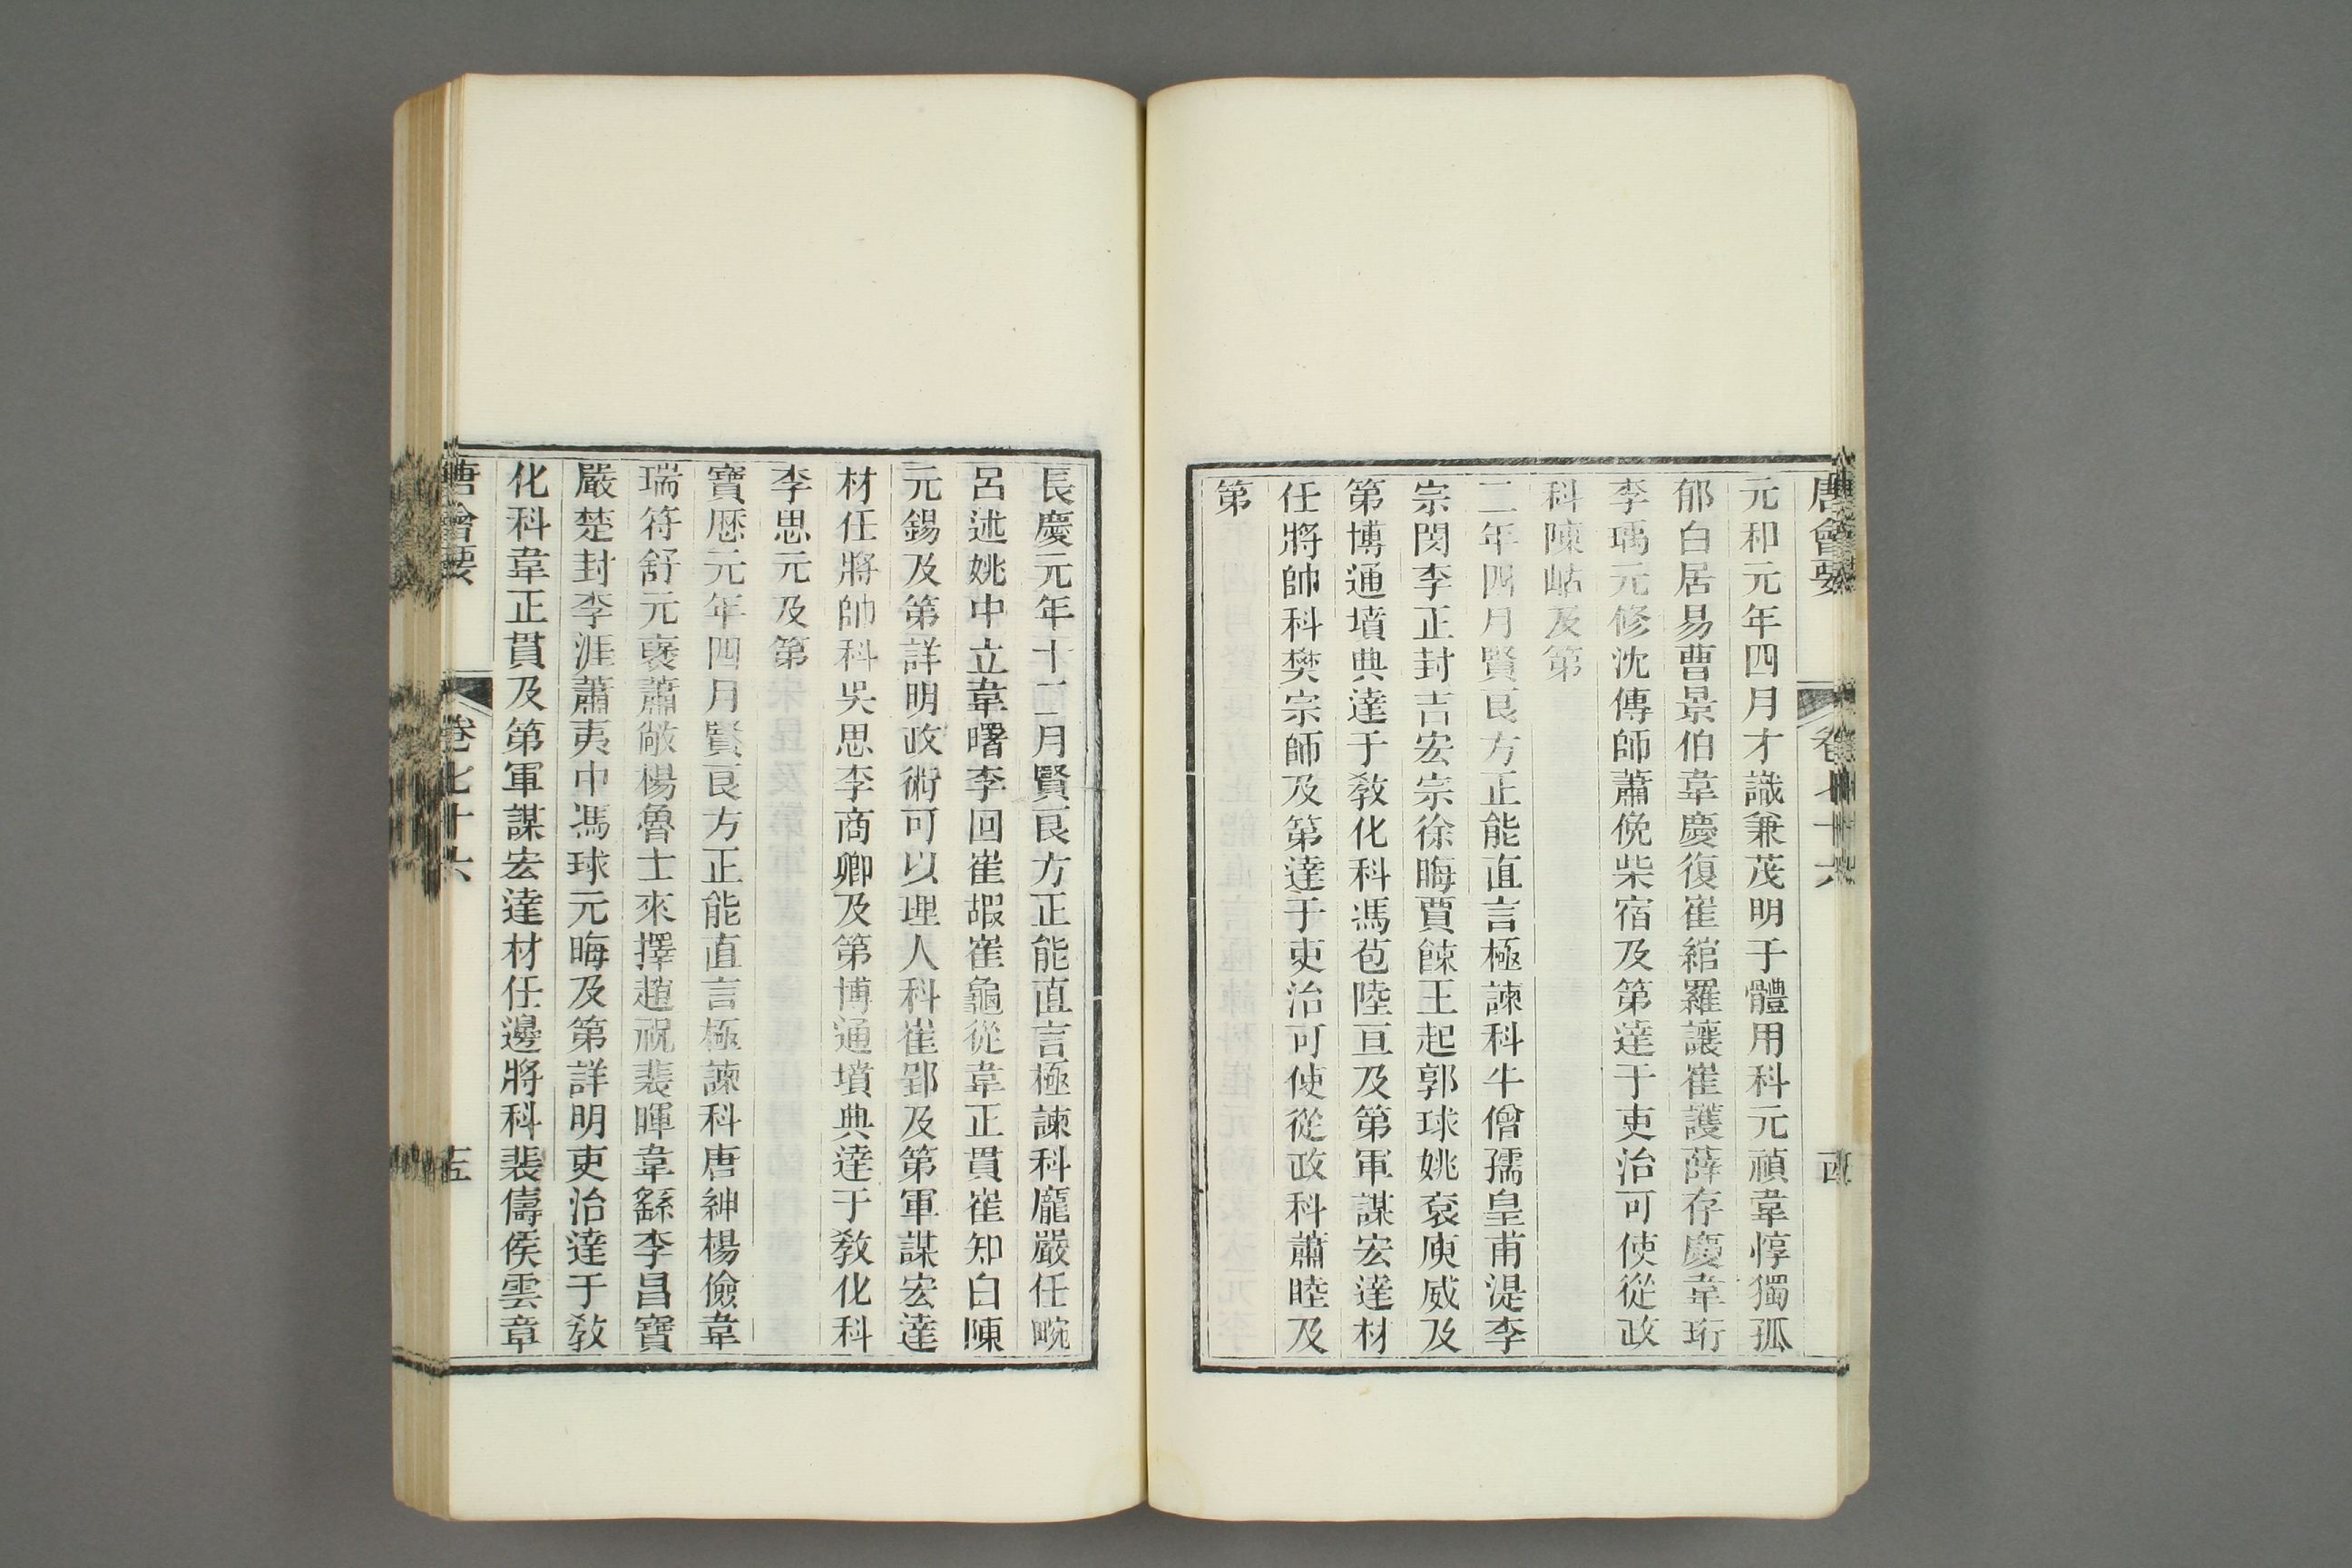 唐會要 卷七十六
元和元年四月才識兼茂明于體用科元稹韋惇獨孤
郁白居易曹景伯韋慶復崔綰羅讓崔護薛存慶韋珩
李瑀元修沈傳師蕭俛柴宿及第達于吏治可使從政
科陳岵及第
二年四月賢良方正能直言極諫科牛僧孺皇甫湜李
宗閔李正封吉宏宗徐晦賈餗王起郭球姚袞庾威及
第博通墳典達于敎化科馮苞陸亘及第軍謀宏達材
任將帥科樊宗師及第達于吏治可使從政科蕭睦及
第
長慶元年十二月賢良方正能直言極諫科龐嚴任畹
呂述姚中立韋曙李回崔嘏崔龜從韋正貫崔知白陳
元錫及第詳明政術可以理人科崔郢及第軍謀宏達
材任將帥科吳思李商卿及第博通墳典達于敎化科
李思元及第
寶歷元年四月賢良方正能直言極諫科唐紳楊儉韋
瑞符舒元褒蕭敞楊魯士來擇趙祝裴暉韋繇李昌寶
嚴楚封李涯蕭夷中馮球元晦及第詳明吏治達于敎
化科韋正貫及第軍謀宏達材任邊將科裴儔侯雲章
唐會要 卷七十六